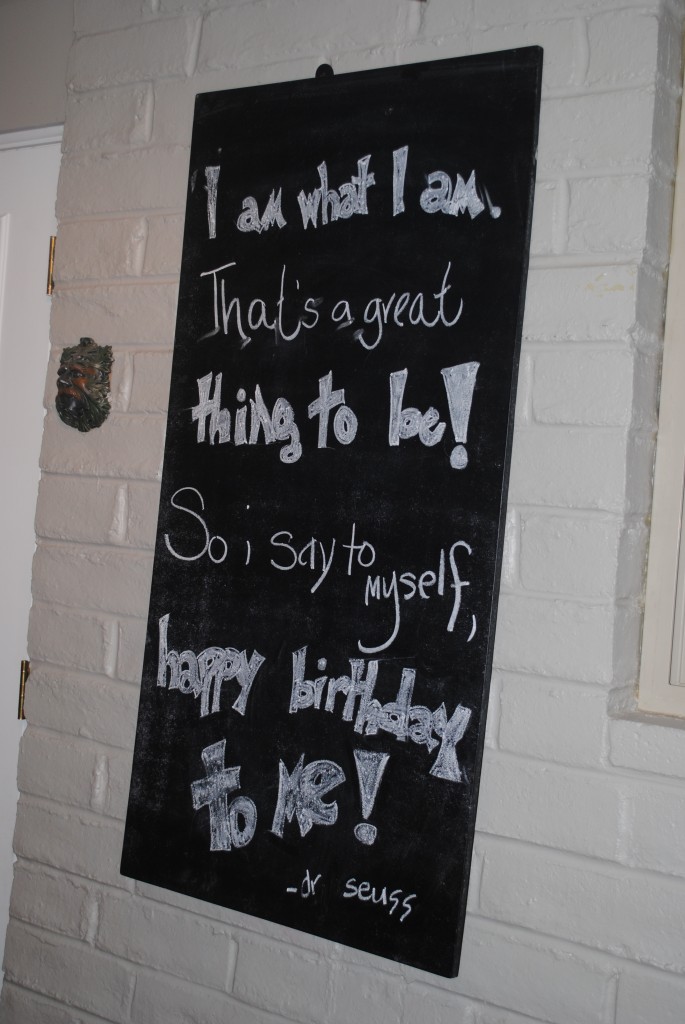 I am what I am.
That's a great
thing to be!
So i say to myself,
happy birthday
to me!
-dr seuss